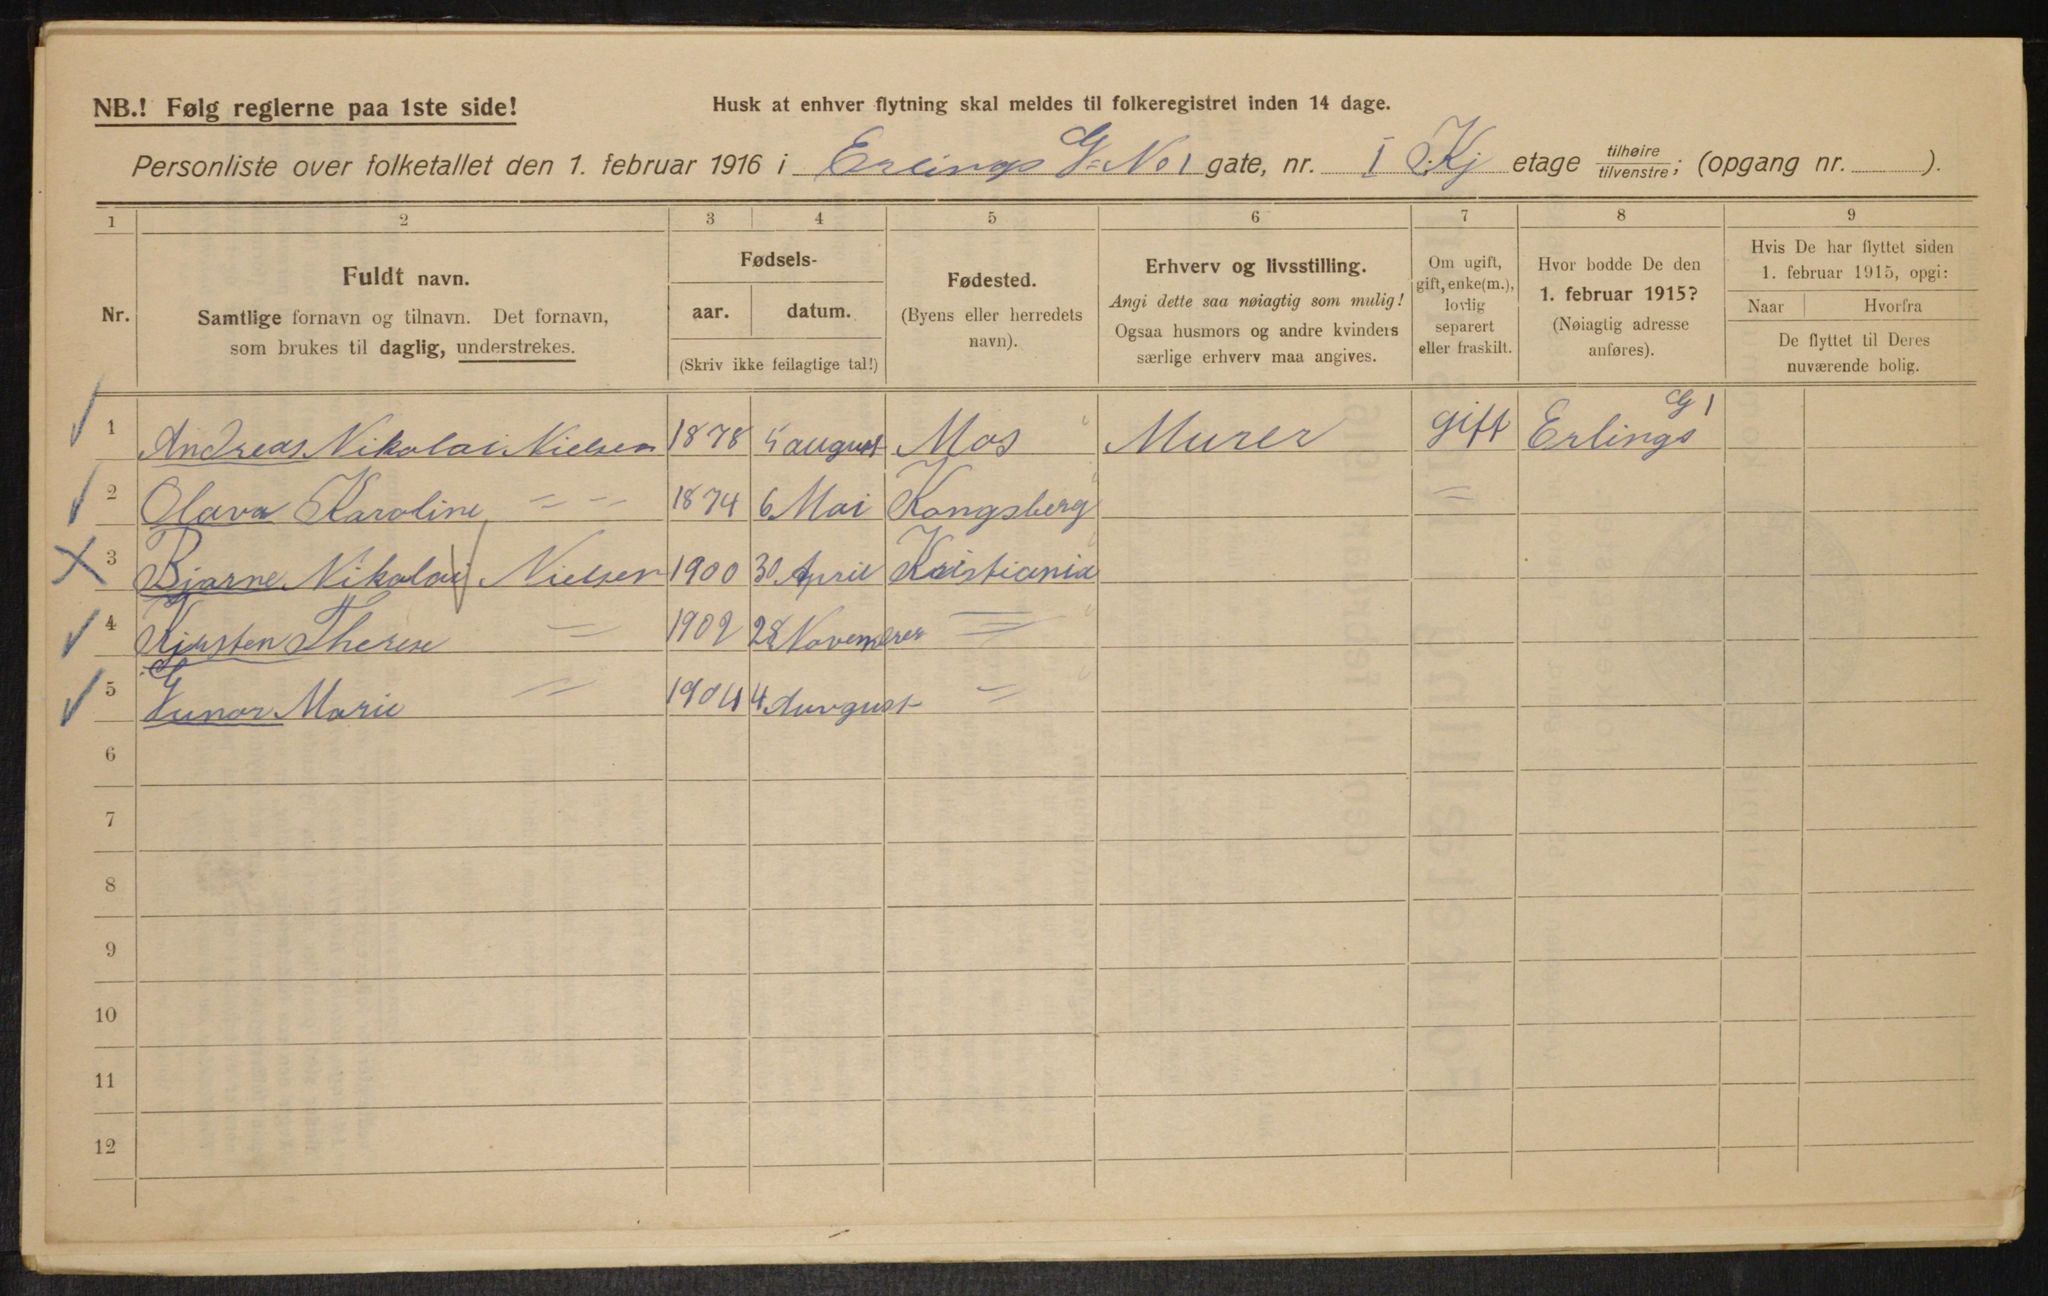 NB.! Følg reglerne paa 1ste side!
Husk at enhver flytning skal meldes til folkeregistret inden 14 dage.
Personliste over folketallet den 1. februar 1916 i Erlings G= No 1 gate, nr. I Kj etage tilhøire/tilvenstre; (opgang nr. ).
1 2 3 4 5 6 7 8 9
Nr.
Fuldt navn.
Samtlige fornavn og tilnavn. Det fornavn,
som brukes til daglig, understrekes.
Fødsels-
aar. datum.
(Skriv ikke feilagtige tal!)
Fødested.
(Byens eller herredets
navn).
Erhverv og livsstilling.
Angi dette saa nøiagtig som mulig!
Ogsaa husmors og andre kvinders
særlige erhverv maa angives.
Om ugift,
gift, enke(m.),
lovlig
separert
eller fraskilt.
Hvor bodde De den
1. februar 1915?
(Nøiagtig adresse
anføres).
Hvis De har flyttet siden
1. februar 1915, opgi:
Naar Hvorfra
De flyttet til Deres
nuværende bolig.
1 Andreas Nikolai Nielsen 1878 5 august Mos Murer gift Erlings G 1
2 Olava Karoline — — 1874 6 Mai Kongsberg =
3 Bjarne Nikolai Nielsen 1900 30 April Kristiania
4 Kirsten Therese = 1902 28 November =
5 Gunor Marie = 1904 4 Auvgust =
6
7
8
9
10
11
12